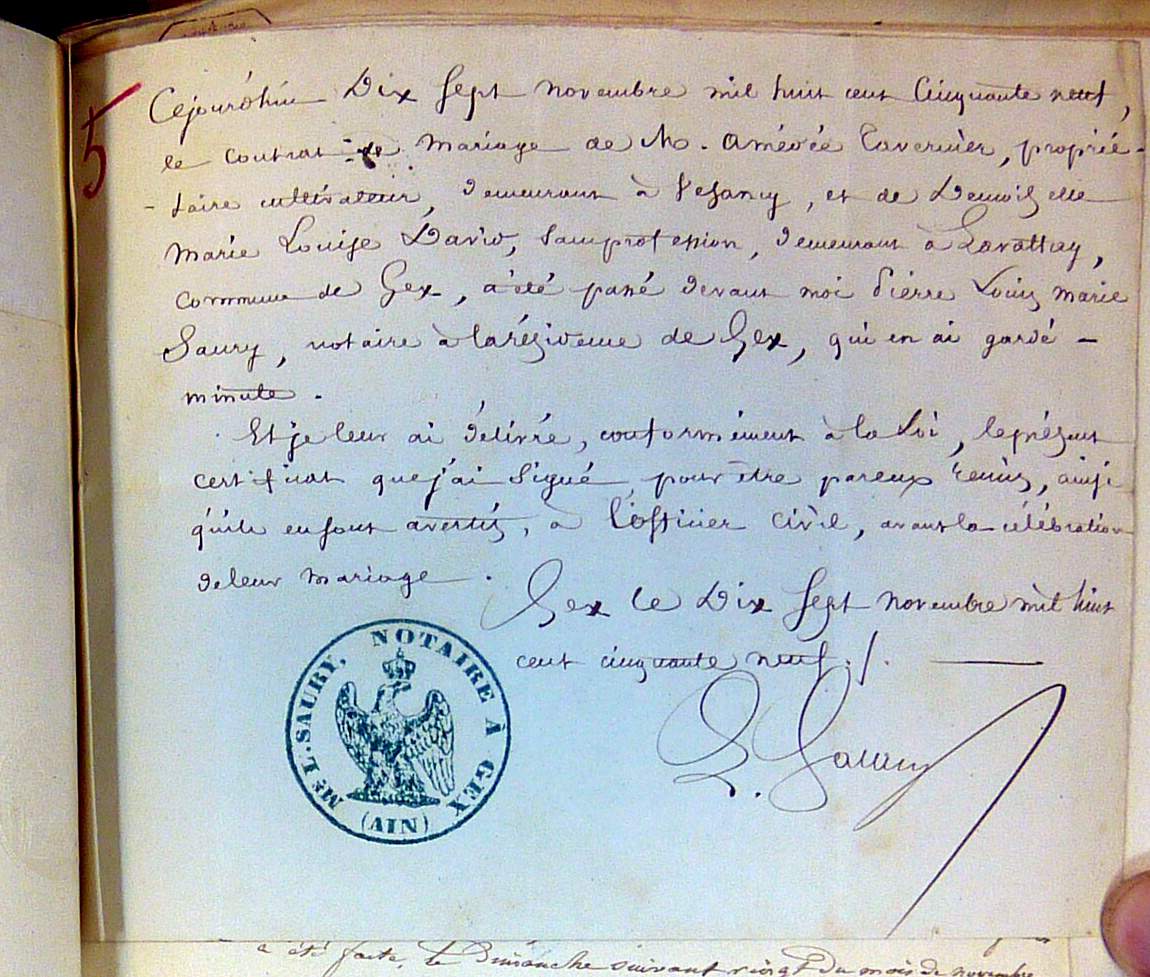 5
Cejourd'hui Dix Sept novembre mil huit cent Cinquante neuf,
le contrat de mariage de M. Amédée Tavernier, proprié-
-taire cultivateur, demeurant à Vesancy, et de Demoiselle
Marie Louise David, sans profession, demeurant à Lavattay,
commune de Gex, a été passé devant moi Pierre Louis Marie
Saury, notaire à la résidence de Gex, qui en ai gardé -
minute.
Et je leur ai délivré, conformément à la Loi, le présent
certificat que j'ai Signé, pour être par eux remis, ainsi
qu'ils en sont avertis, à l'officier civil, avant la célébration
de leur mariage.
Gex le Dix Sept novembre mil huit
cent cinquante neuf ./.
Me L. SAURY, NOTAIRE À GEX
(AIN)
L. Saury
a été faite, le Dimanche suivant vingt du mois de novembre